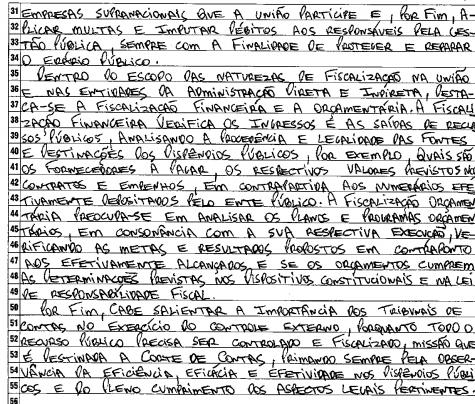 31 EMPRESAS SUPRANACIONAIS QUE A UNIÃO PARTICIPE E, POR FIM, A-
32 PLICAR MULTAS E IMPUTAR DÉBITOS AOS RESPONSÁVEIS PELA GES-
33 TÃO PÚBLICA, SEMPRE COM A FINALIDADE DE PROTEGER E REPARAR
34 O ERÁRIO PÚBLICO.
35 DENTRO DO ESCOPO DAS NATUREZAS DE FISCALIZAÇÃO NA UNIÃO
36 E NAS ENTIDADES DA ADMINISTRAÇÃO DIRETA E INDIRETA, DESTA-
37 CA-SE A FISCALIZAÇÃO FINANCEIRA E A ORÇAMENTÁRIA. A FISCALI-
38 ZAÇÃO FINANCEIRA VERIFICA OS INGRESSOS E AS SAÍDAS DE RECUR-
39 SOS PÚBLICOS, ANALISANDO A PROCEDÊNCIA E LEGALIDADE DAS FONTES
40 E DESTINAÇÕES DOS DISPÊNDIOS PÚBLICOS, POR EXEMPLO, QUAIS SÃO
41 OS FORNECEDORES A PAGAR, OS RESPECTIVOS VALORES PREVISTOS NOS
42 CONTRATOS E EMPENHOS, EM CONTRAPARTIDA AOS NUMERÁRIOS EFE-
43 TIVAMENTE DEPOSITADOS PELO ENTE PÚBLICO. A FISCALIZAÇÃO ORÇAMEN-
44 TÁRIA PREOCUPA-SE EM ANALISAR OS PLANOS E PROGRAMAS ORÇAMEN-
45 TÁRIOS, EM CONSONÂNCIA COM A SUA RESPECTIVA EXECUÇÃO, VE-
46 RIFICANDO AS METAS E RESULTADOS PROPOSTOS EM CONTRAPONTO
47 AOS EFETIVAMENTE ALCANÇADOS E SE OS ORÇAMENTOS CUMPREM
48 AS DETERMINAÇÕES PREVISTAS NOS DISPOSITIVOS CONSTITUCIONAIS E NA LEI
49 DE RESPONSABILIDADE FISCAL.
50 POR FIM, CABE SALIENTAR A IMPORTÂNCIA DOS TRIBUNAIS DE
51 CONTAS NO EXERCÍCIO DO CONTROLE EXTERNO, PORQUANTO TODO O
52 RECURSO PÚBLICO PRECISA SER CONTROLADO E FISCALIZADO, MISSÃO QUE
53 É DESTINADA A CORTE DE CONTAS, PRIMANDO SEMPRE PELA OBSER-
54 VÂNCIA DA EFICIÊNCIA, EFICÁCIA E EFETIVIDADE NOS DISPÊNDIOS PÚBLI-
55 COS E DO PLENO CUMPRIMENTO DOS ASPECTOS LEGAIS PERTINENTES.
56